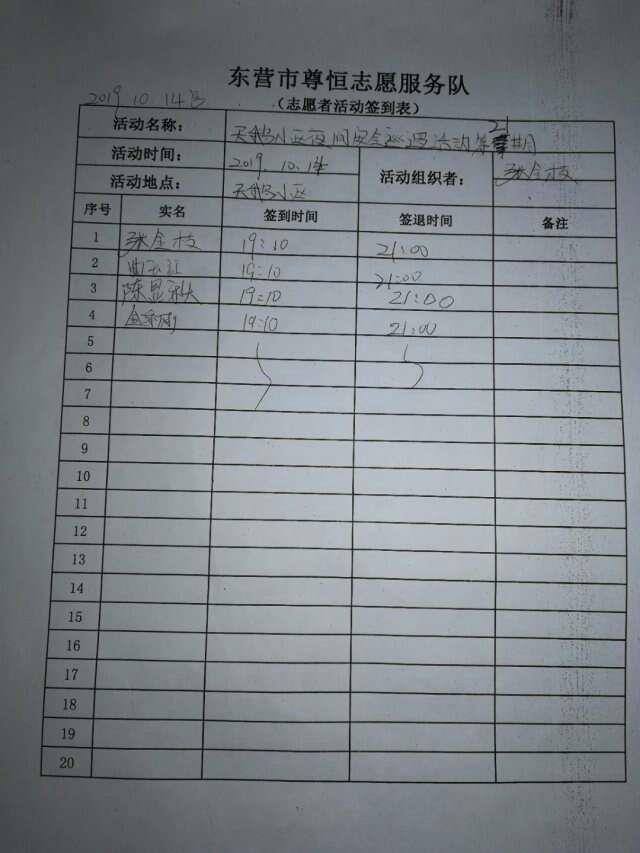 东营市尊恒志愿服务队
2019.10.14号
（志愿者活动签到表）
活动名称： 天鹅小区夜间安全巡逻活动第21
活动时间： 2019.10.14 活动组织者： 张金枝
活动地点： 天鹅小区
序号 实名 签到时间 签退时间 备注
1 张金枝 19:10 21:00
2 19:10 21:00
3 陈显 19:10 21:00
4 金 19:10 21:00
5
6
7
8
9
10
11
12
13
14
15
16
17
18
19
20